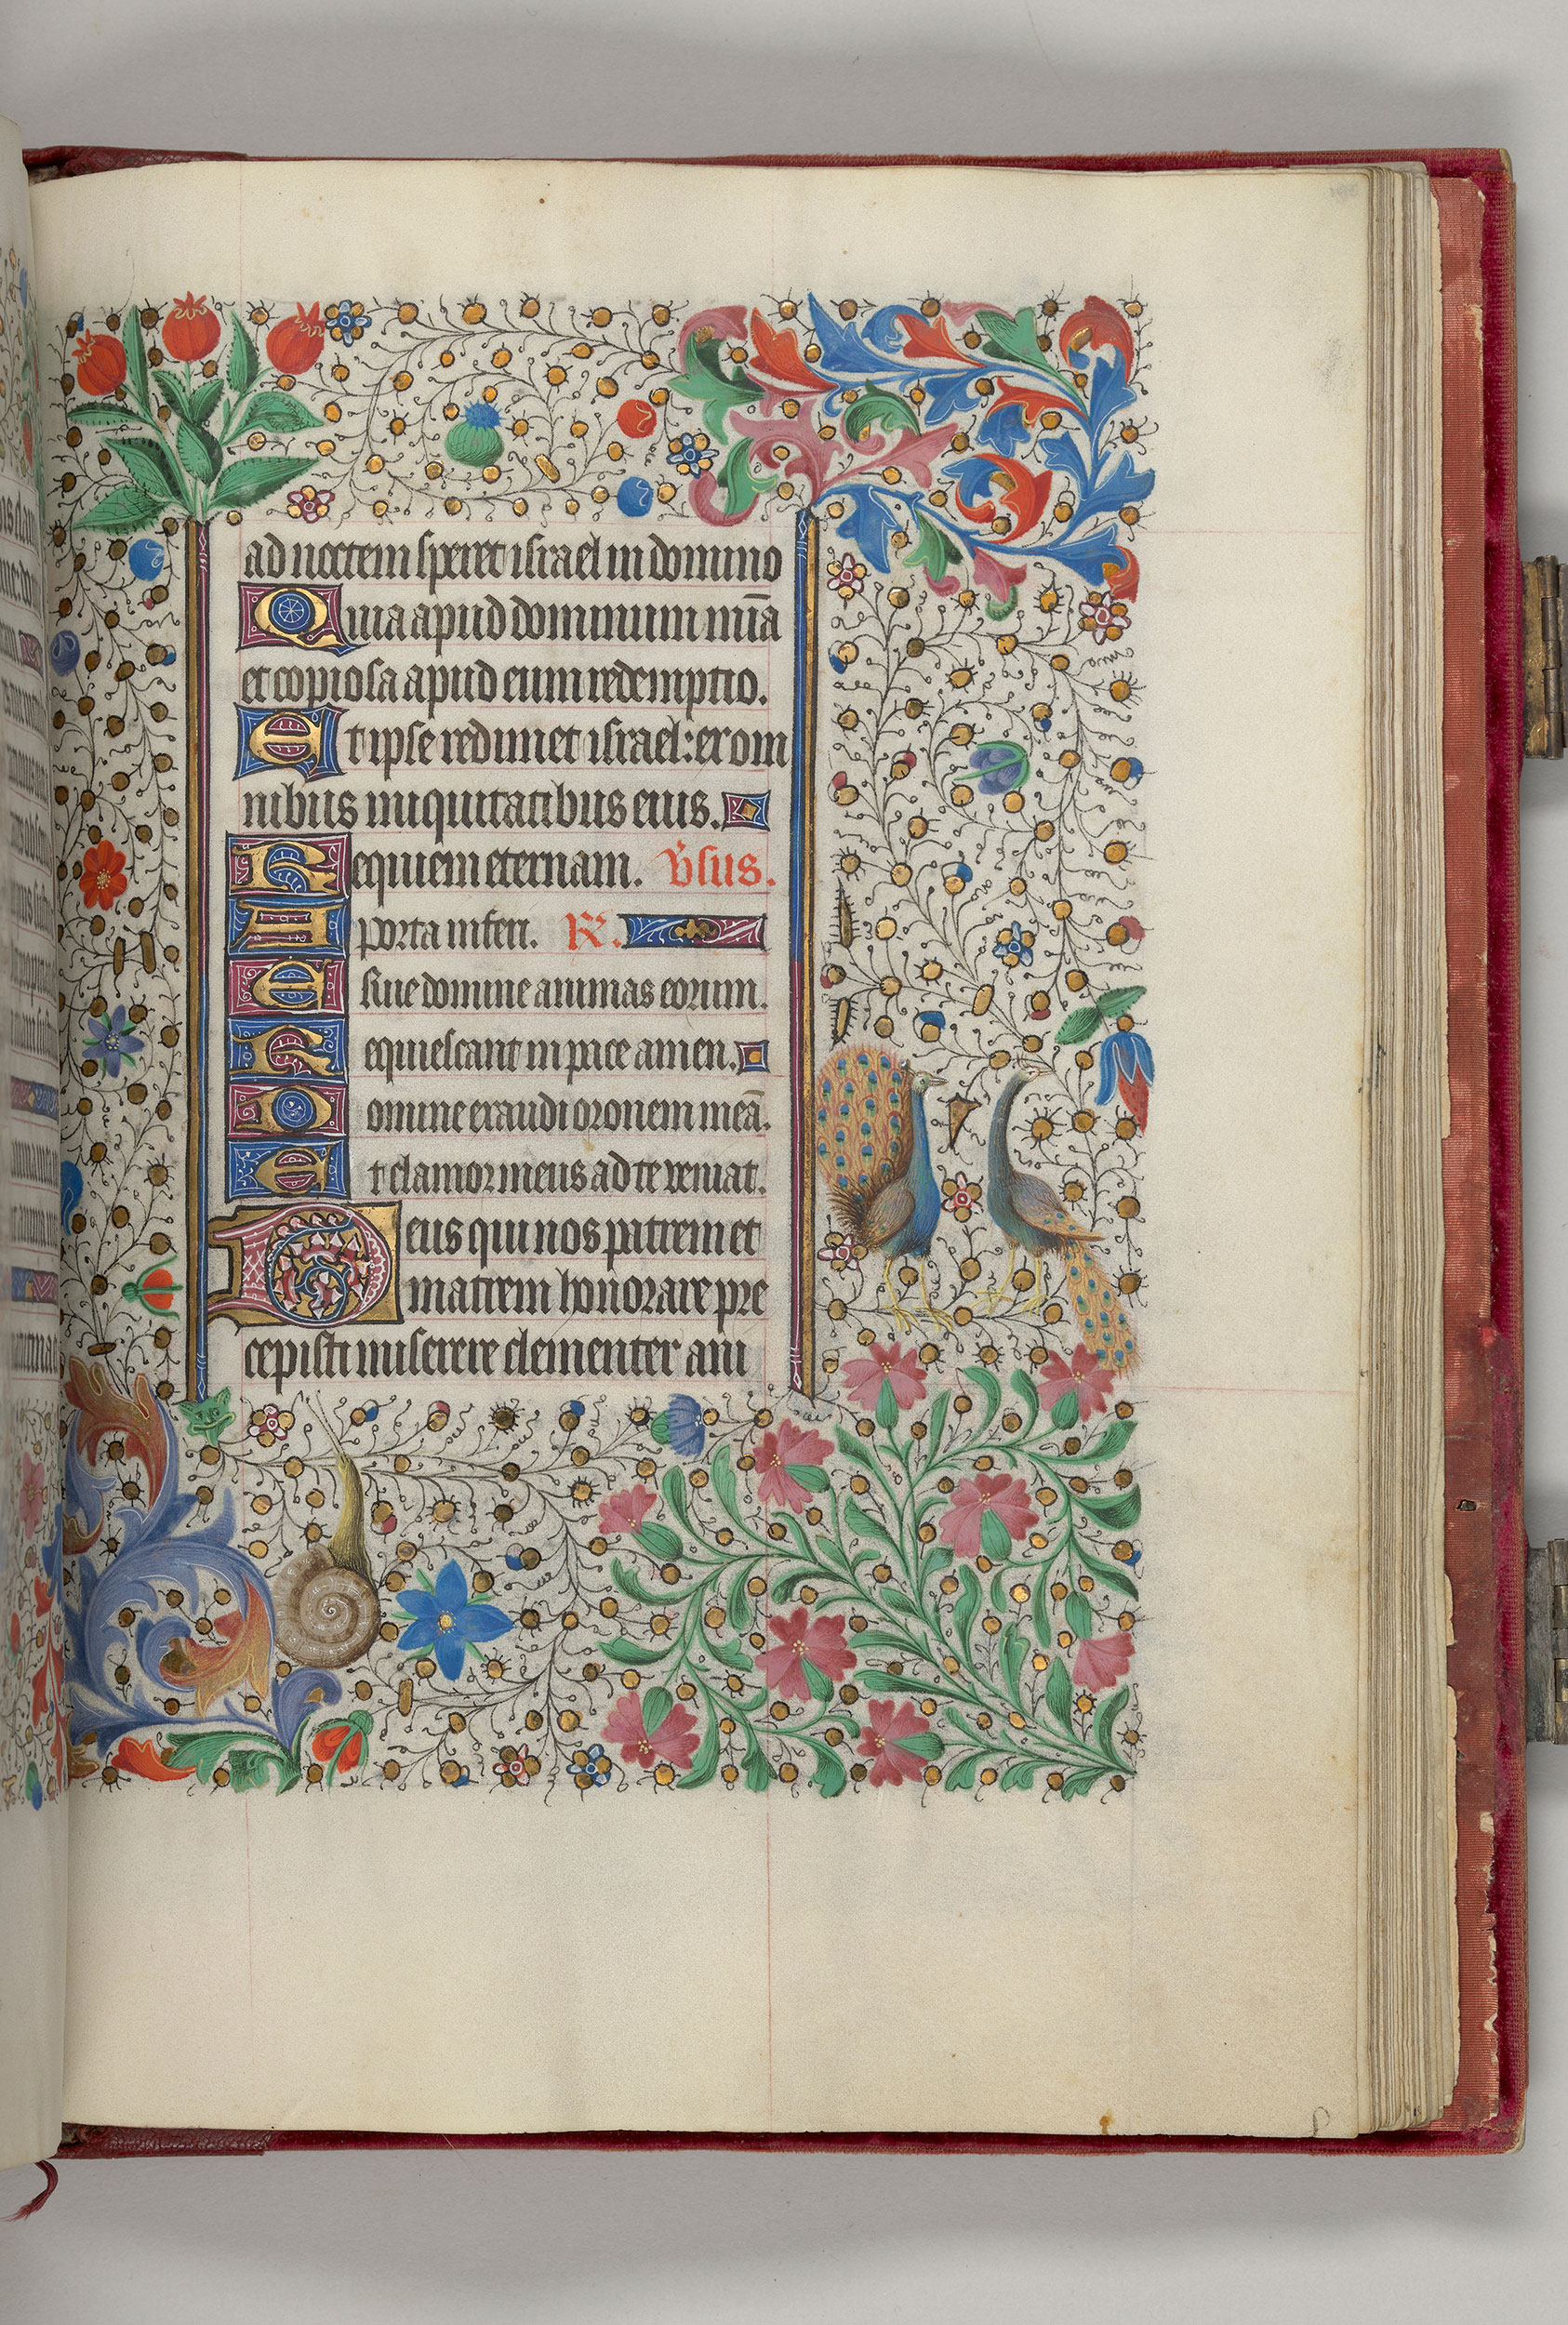 ad noctem speret israel in domino
Quia apud dominum mīa
et copiosa apud eum redemptio.
Et ipse redimet israel: ex om
nibus iniquitatibus eius.
Requiem eternam. v̄sus.
A porta inferi. R̄.
Erue domine animas eorum.
Requiescant in pace amen.
Domine exaudi oronem meā.
Et clamor meus ad te veniat.
Deus qui nos patrem et
matrem honorare pre
cepisti miserere clementer ani